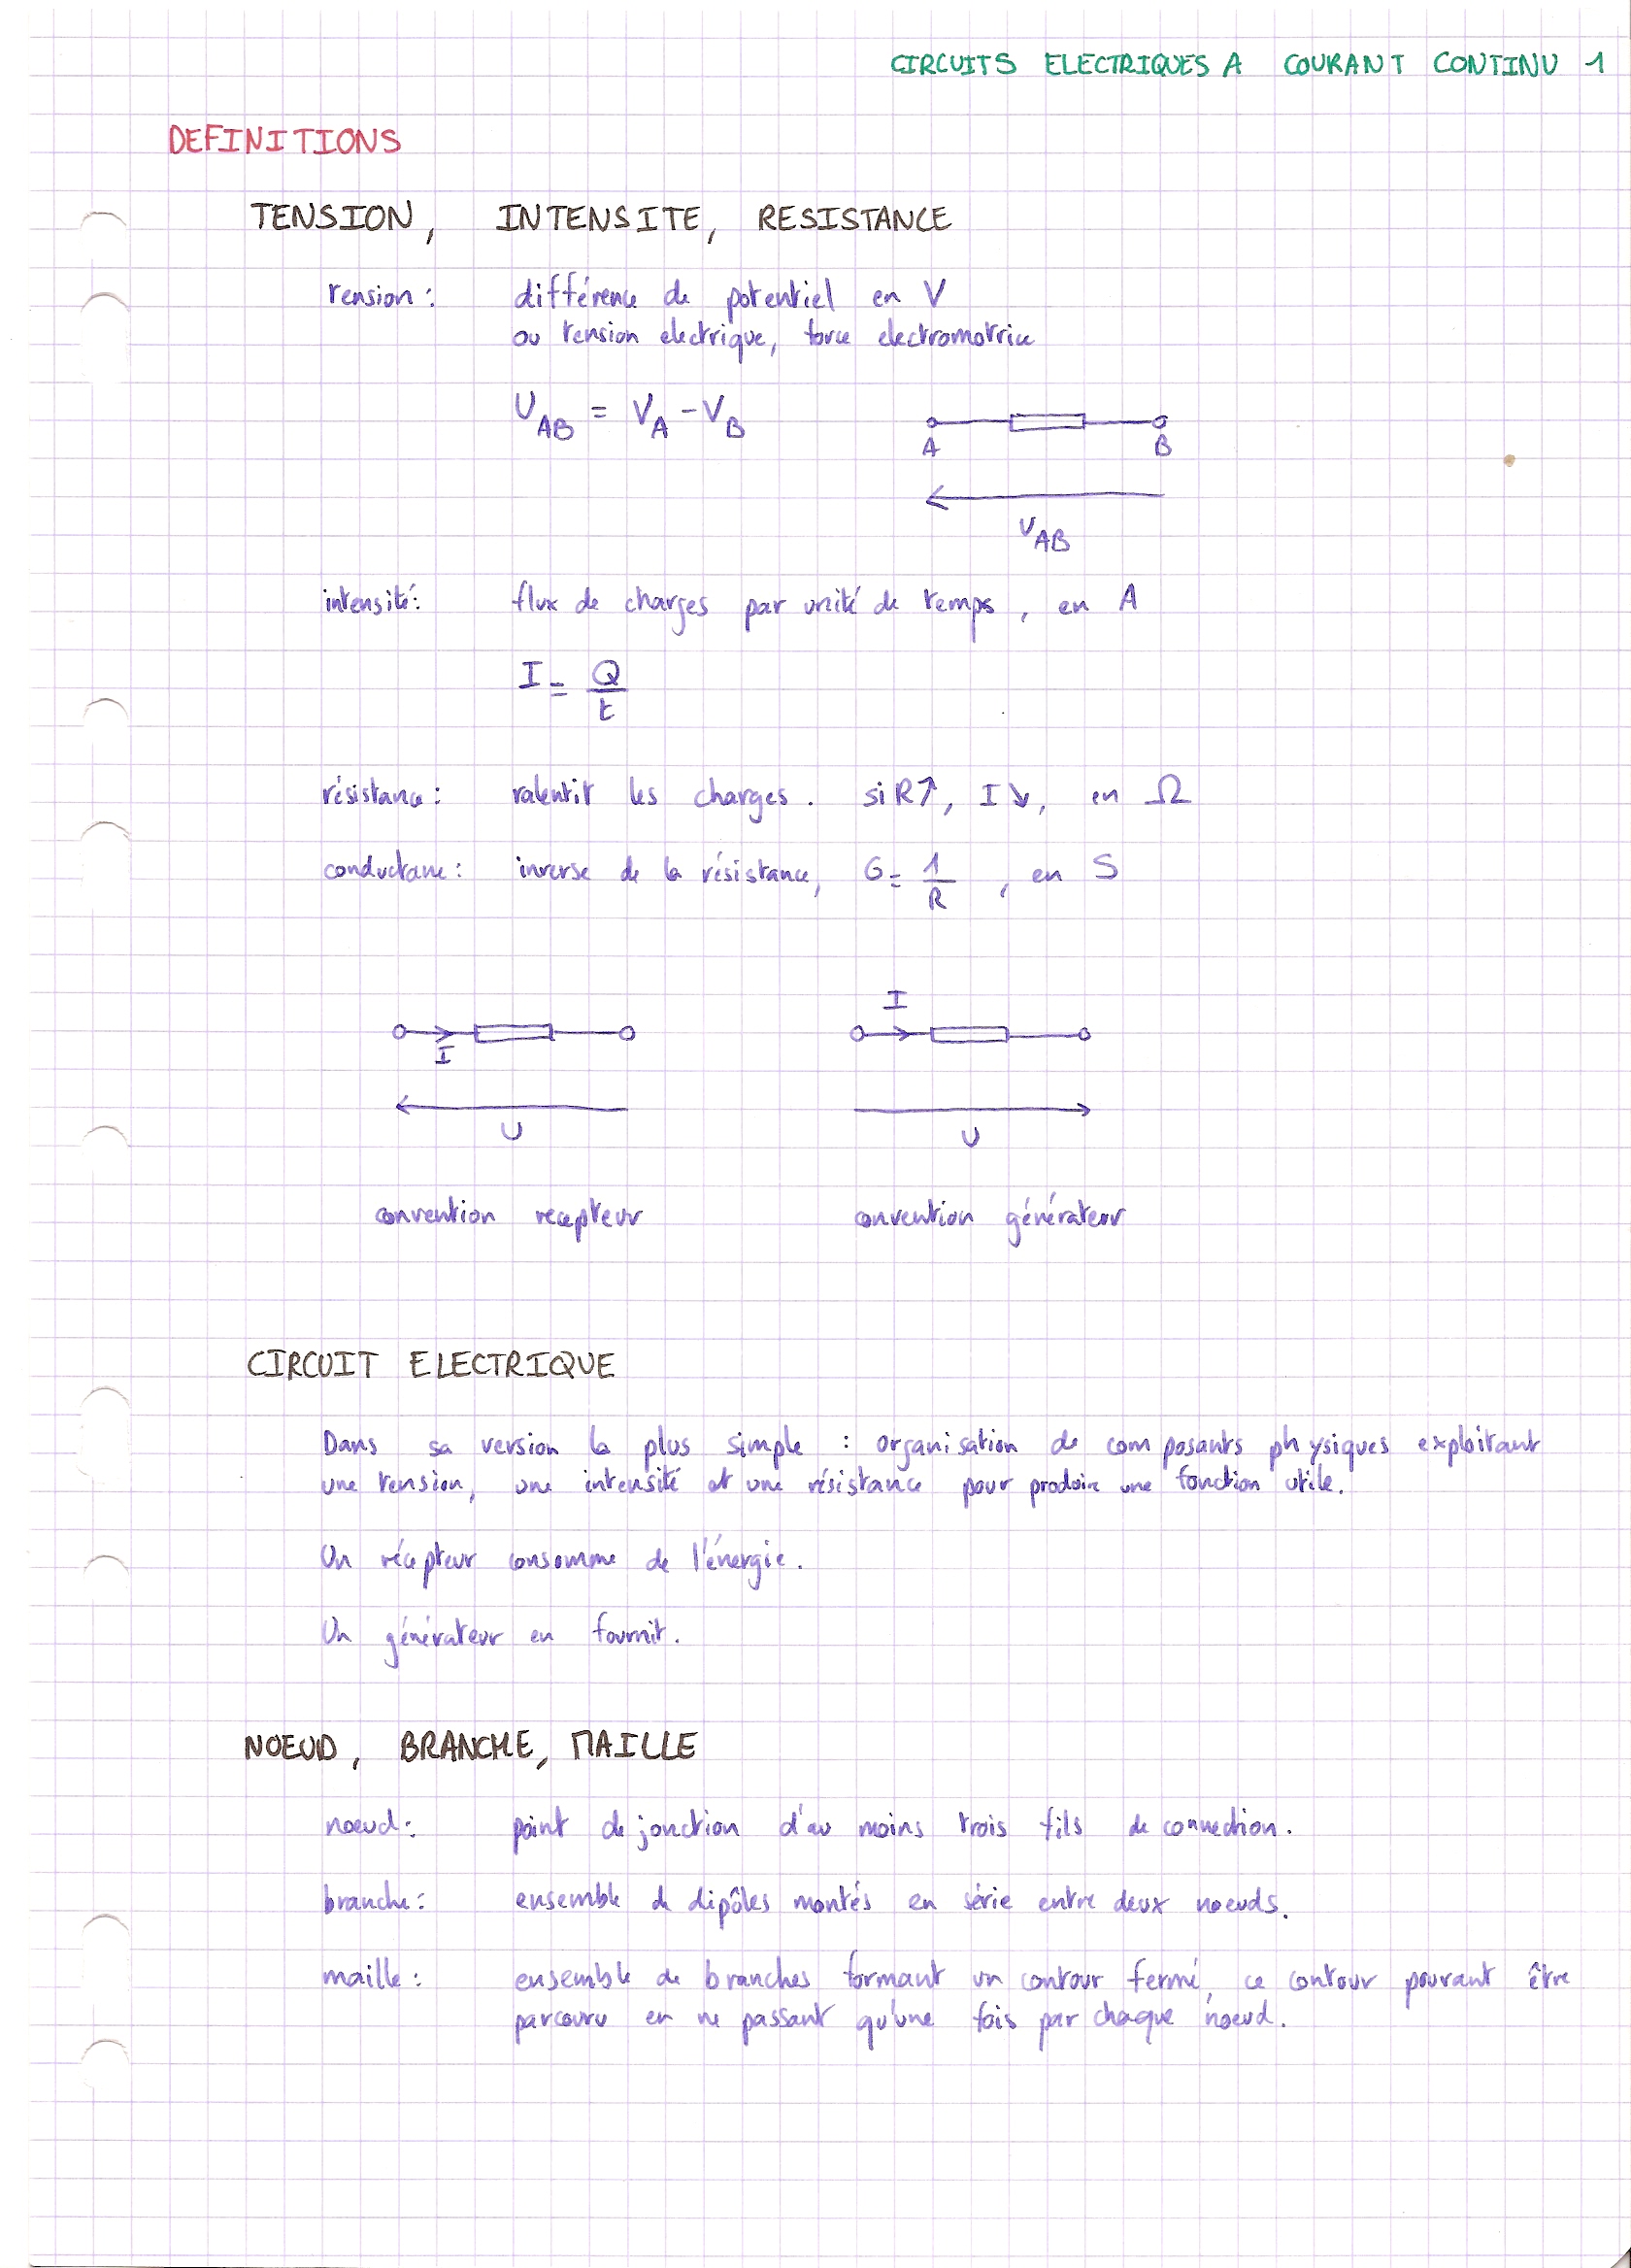 CIRCUITS ELECTRIQUES A COURANT CONTINU 1
DEFINITIONS
TENSION, INTENSITE, RESISTANCE
tension : différence de potentiel en V
ou tension electrique, force electromotrice
U_AB = V_A - V_B
A B
U_AB
intensité : flux de charges par unité de temps, en A
I = Q/t
résistance : ralentit les charges. si R↑, I↘, en Ω
conductance : inverse de la résistance, G = 1/R, en S
I I
U U
convention recepteur convention générateur
CIRCUIT ELECTRIQUE
Dans sa version la plus simple : organisation de composants physiques exploitant
une tension, une intensité et une résistance pour produire une fonction utile.
Un récepteur consomme de l'énergie.
Un générateur en fournit.
NOEUD, BRANCHE, MAILLE
noeud : point de jonction d'au moins trois fils de connection.
branche : ensemble de dipôles montés en série entre deux noeuds.
maille : ensemble de branches formant un contour fermé, ce contour pouvant être
parcouru en ne passant qu'une fois par chaque noeud.